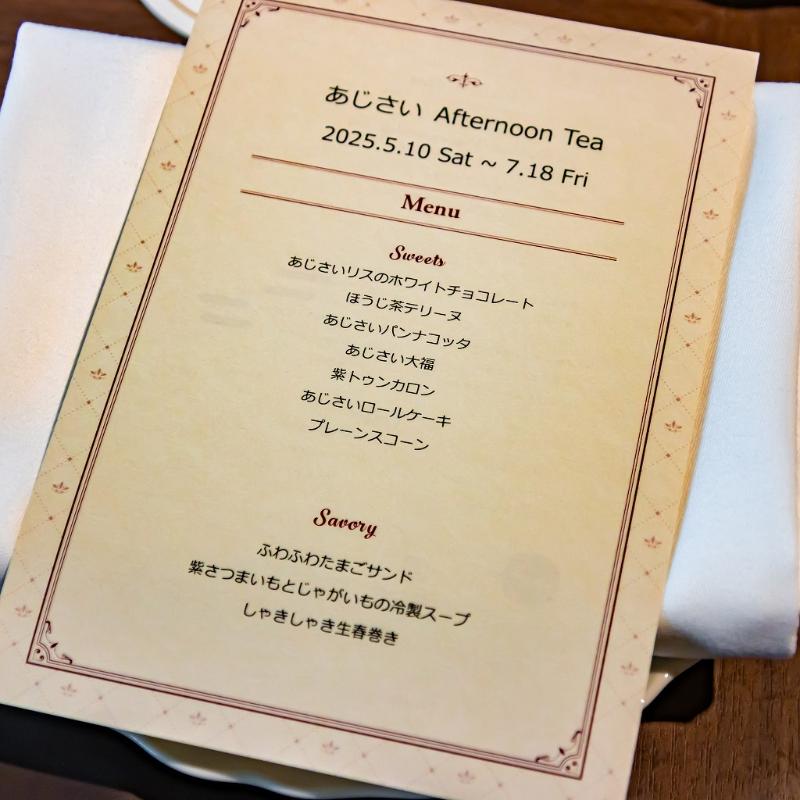 あじさい Afternoon Tea
2025.5.10 Sat ~ 7.18 Fri
Menu
Sweets
あじさいリスのホワイトチョコレート
ほうじ茶テリーヌ
あじさいパンナコッタ
あじさい大福
紫トゥンカロン
あじさいロールケーキ
プレーンスコーン
Savory
ふわふわたまごサンド
紫さつまいもとじゃがいもの冷製スープ
しゃきしゃき生春巻き